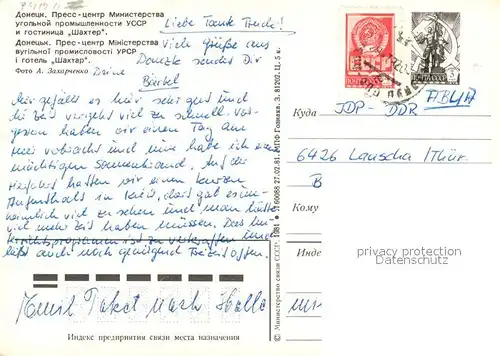 Донецк. Пресс-центр Министерства
угольной промышленности УССР
и гостиница „Шахтер".
Донецьк. Прес-центр Міністерства
вугільної промисловості УРСР
і готель „Шахтар".
Фото А. Захарченко
Liebe Tante Trudi!
Viele Grüße aus
Donezk sendet Dir
Deine
Bärbel
Mir gefällt es hier sehr gut und
die Zeit vergeht viel zu schnell. Vor-
gestern haben wir einen Tag am
Meer verbracht und nun habe ich einen
mächtigen Sonnenbrand. Auf der
Hinfahrt hatten wir einen kurzen
Aufenthalt in Kiew, dort gab es un-
heimlich viel zu sehen und man hätte
viel mehr Zeit haben müssen. Das
und
läßt auch noch genügend Freizeit offen.
Paket nach Halle
Индекс предприятия связи места назначения
© Министерство связи СССР. 1981
З. 60088 27.02.81. МПФ Гознака. З. 81202. Ц. 5 к.
Куда
АВИА
DDR
6426 Lauscha /Thür.
Кому
Инде
privacy protection
watermark